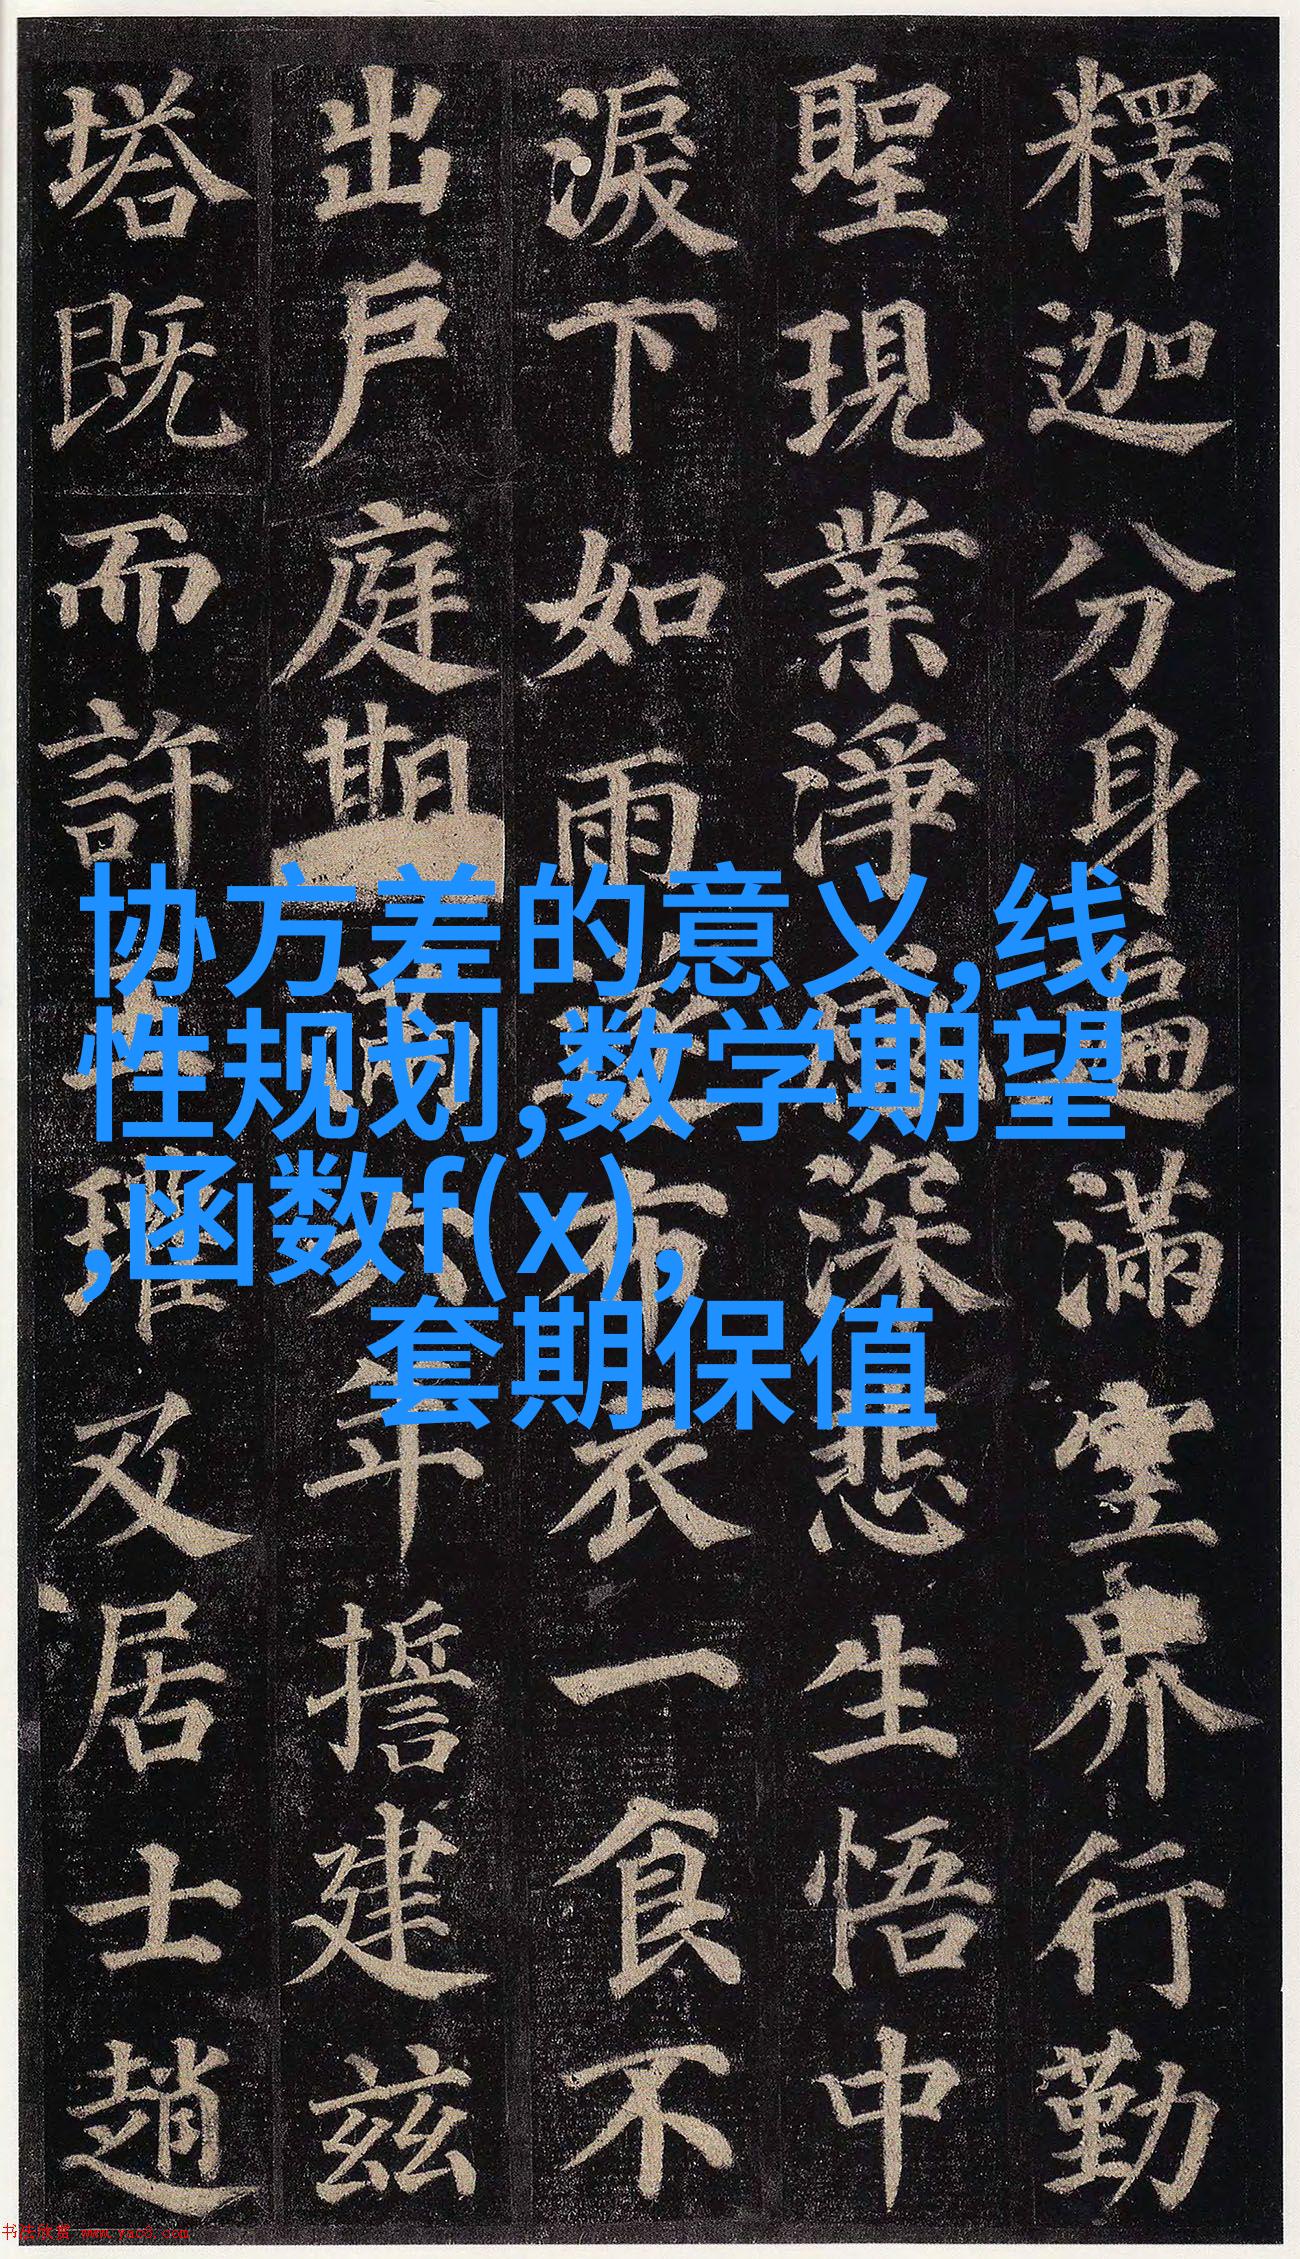 协方差的意义,线
性规划,数学期望
,函数f(x),
套期保值
釋迦分身遍滿空界行勤
聖現業淨感深悲生悟中
淚下如雨遂布衣一食不
出戶庭期滿六年誓建茲
塔既而許王瓘及居士趙
书法欣赏 www.yac8.com